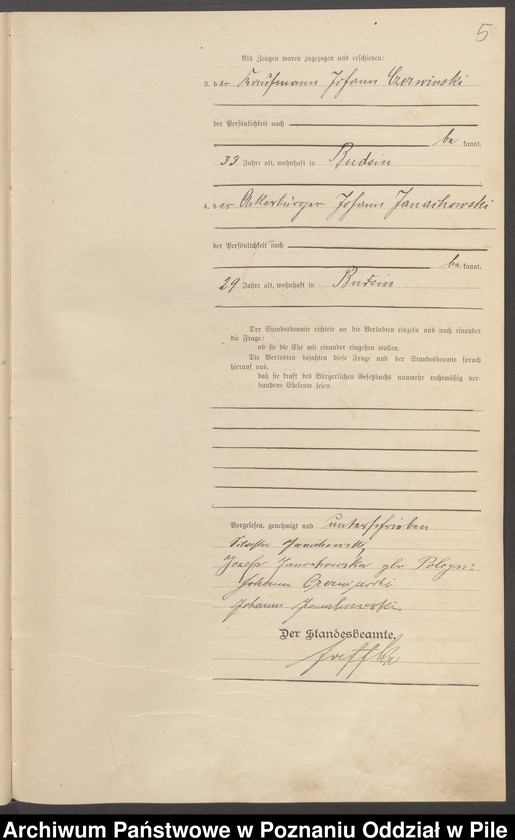 5
Als Zeugen waren zugezogen und erschienen:
3. der Kaufmann Johann Czerwinski
der Persönlichkeit nach
be kannt.
33 Jahre alt, wohnhaft in Budsin
4. der Ackerbürger Johann Janachowski
der Persönlichkeit nach
be kannt.
29 Jahre alt, wohnhaft in Budsin
Der Standesbeamte richtete an die Verlobten einzeln und nach einander
die Frage:
ob sie die Ehe mit einander eingehen wollen.
Die Verlobten bejahten diese Frage und der Standesbeamte sprach
hierauf aus,
daß sie kraft des Bürgerlichen Gesetzbuchs nunmehr rechtmäßig ver-
bundene Eheleute seien.
Vorgelesen, genehmigt und unterschrieben
Janachowski
Janachowska gb
Johann Czerwinski
Johann Janachowski
Der Standesbeamte.
Archiwum Państwowe w Poznaniu Oddział w Pile